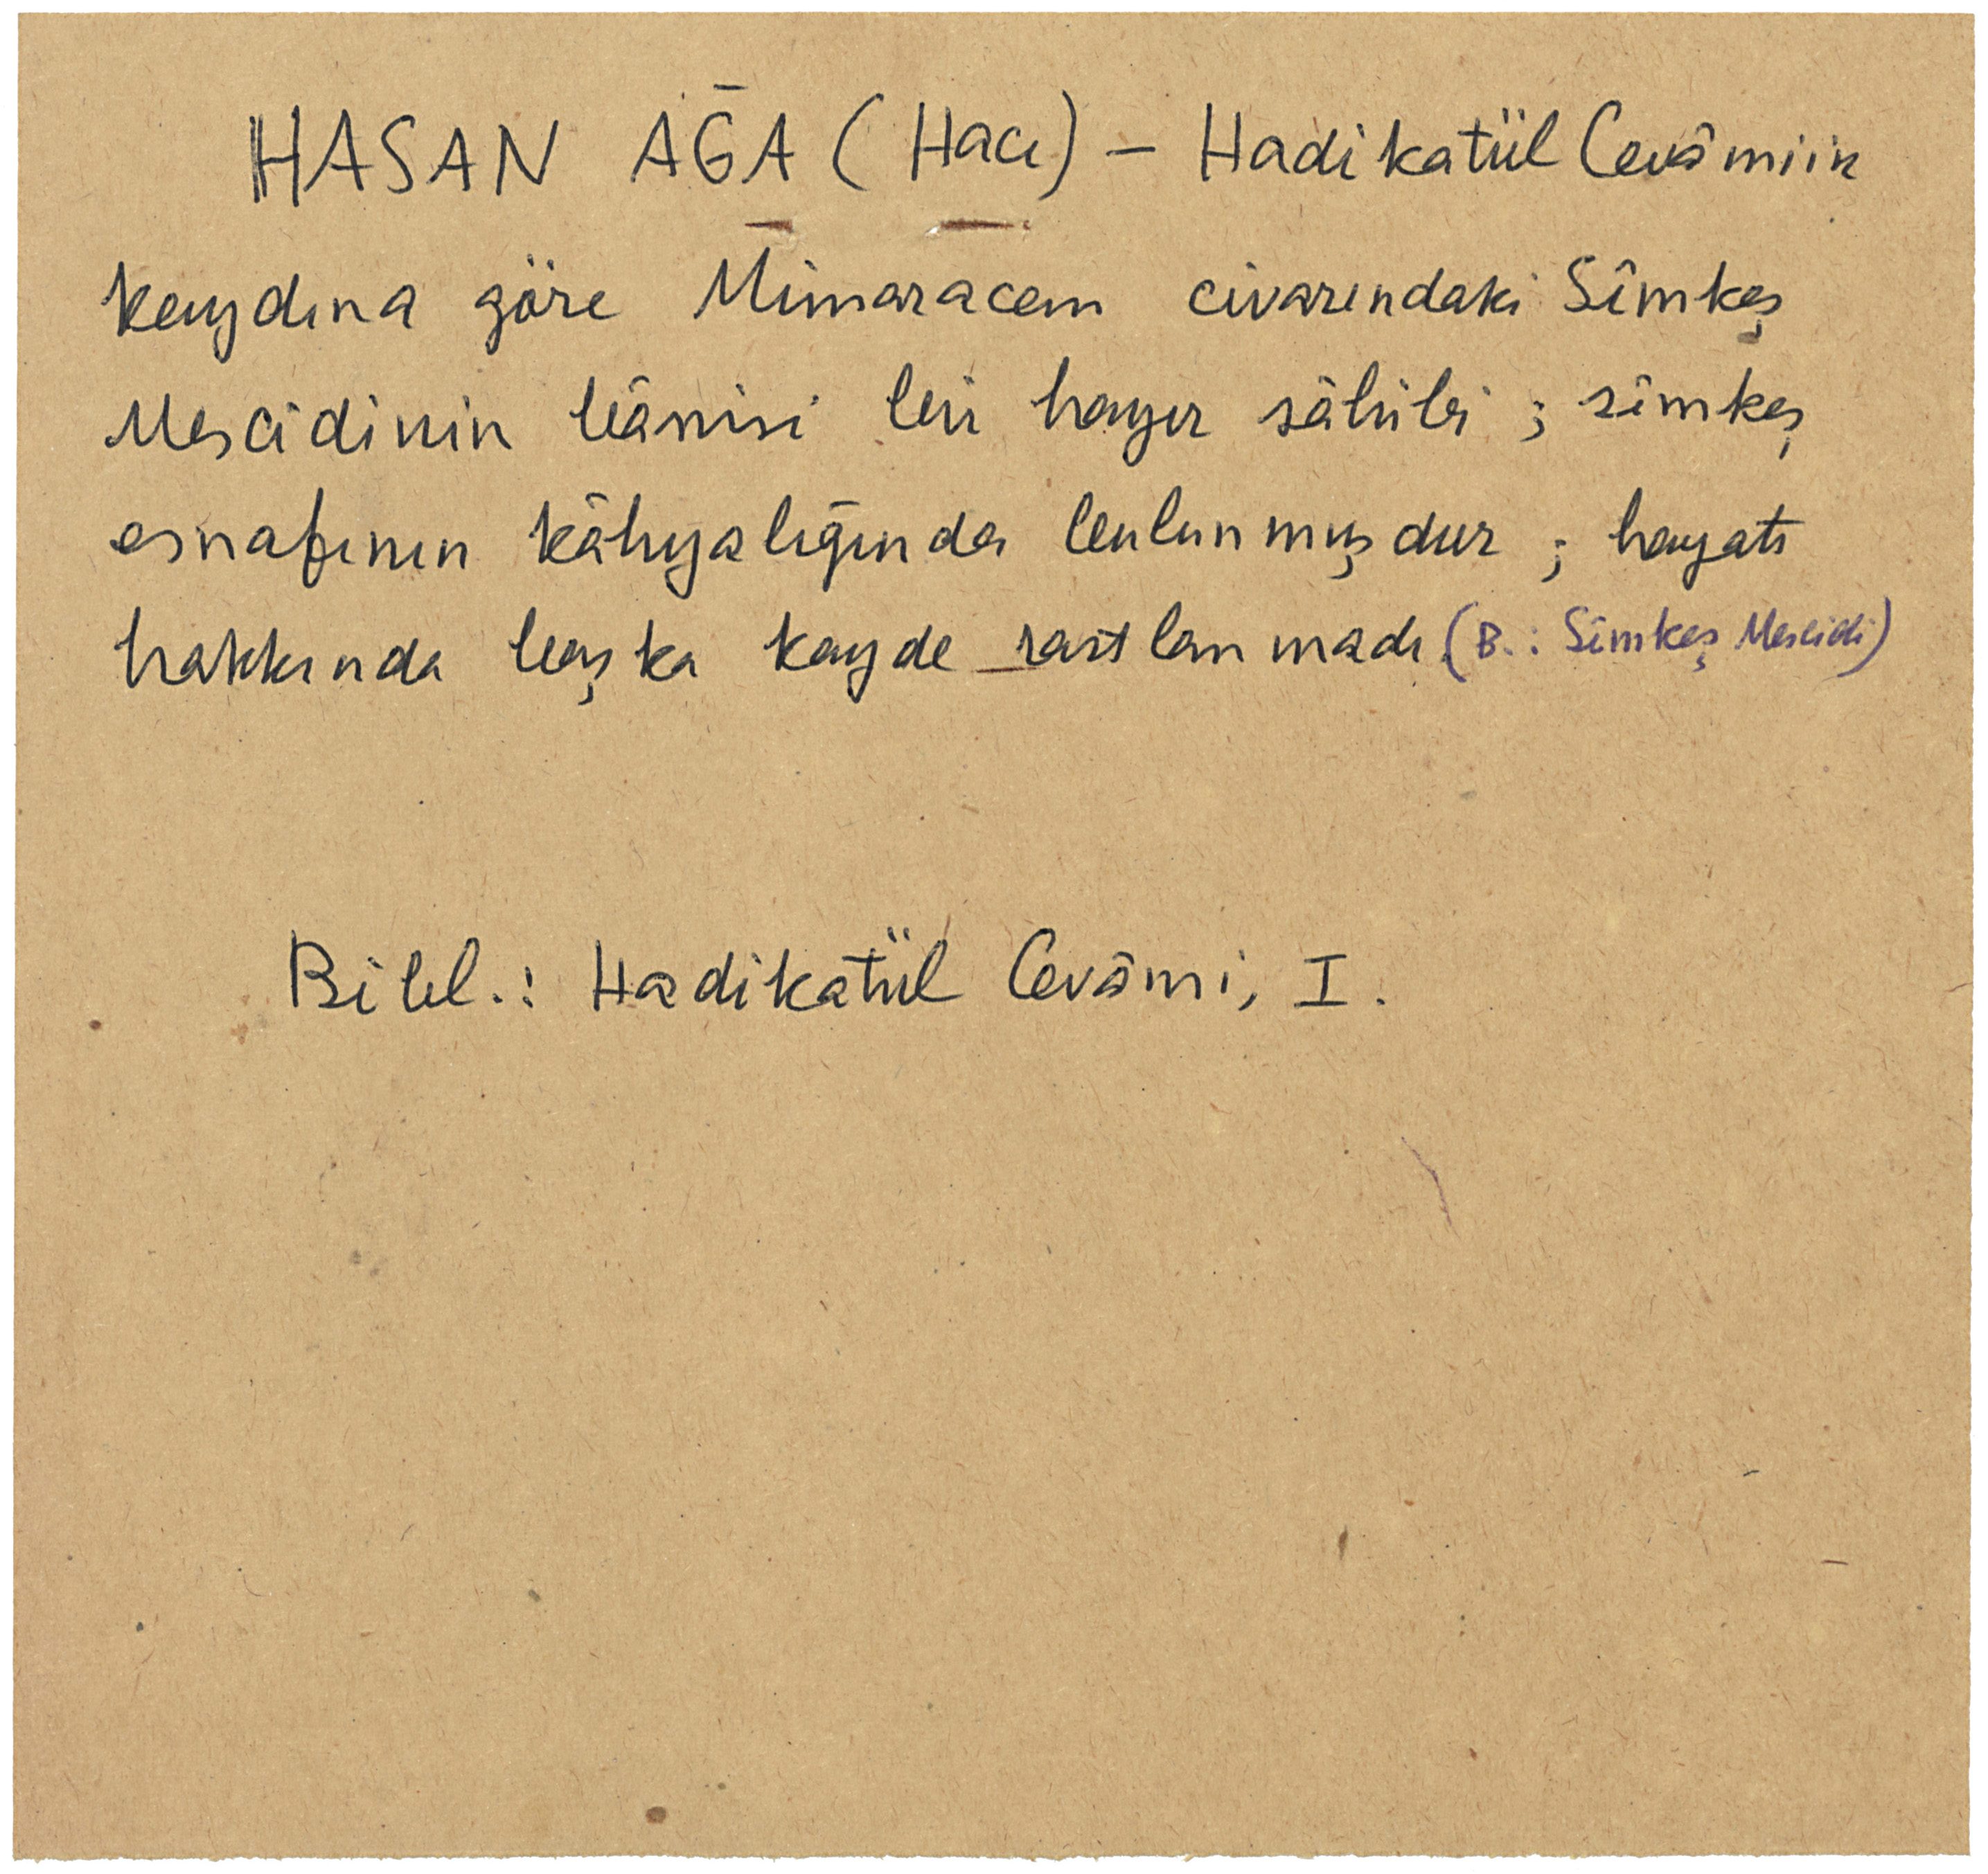 HASAN AĞA (Hacı) – Hadikatül Cevâmiin
kaydına göre Mimaracem civarındaki Sîmkeş
Mescidinin bânisi bir hayır sâhibi ; sîmkeş
esnafının kâhyalığında bulunmuşdur ; hayatı
hakkında başka kayde rastlanmadı (B.: Sîmkeş Mescidi)
Bibl.: Hadikatül Cevâmi, I.